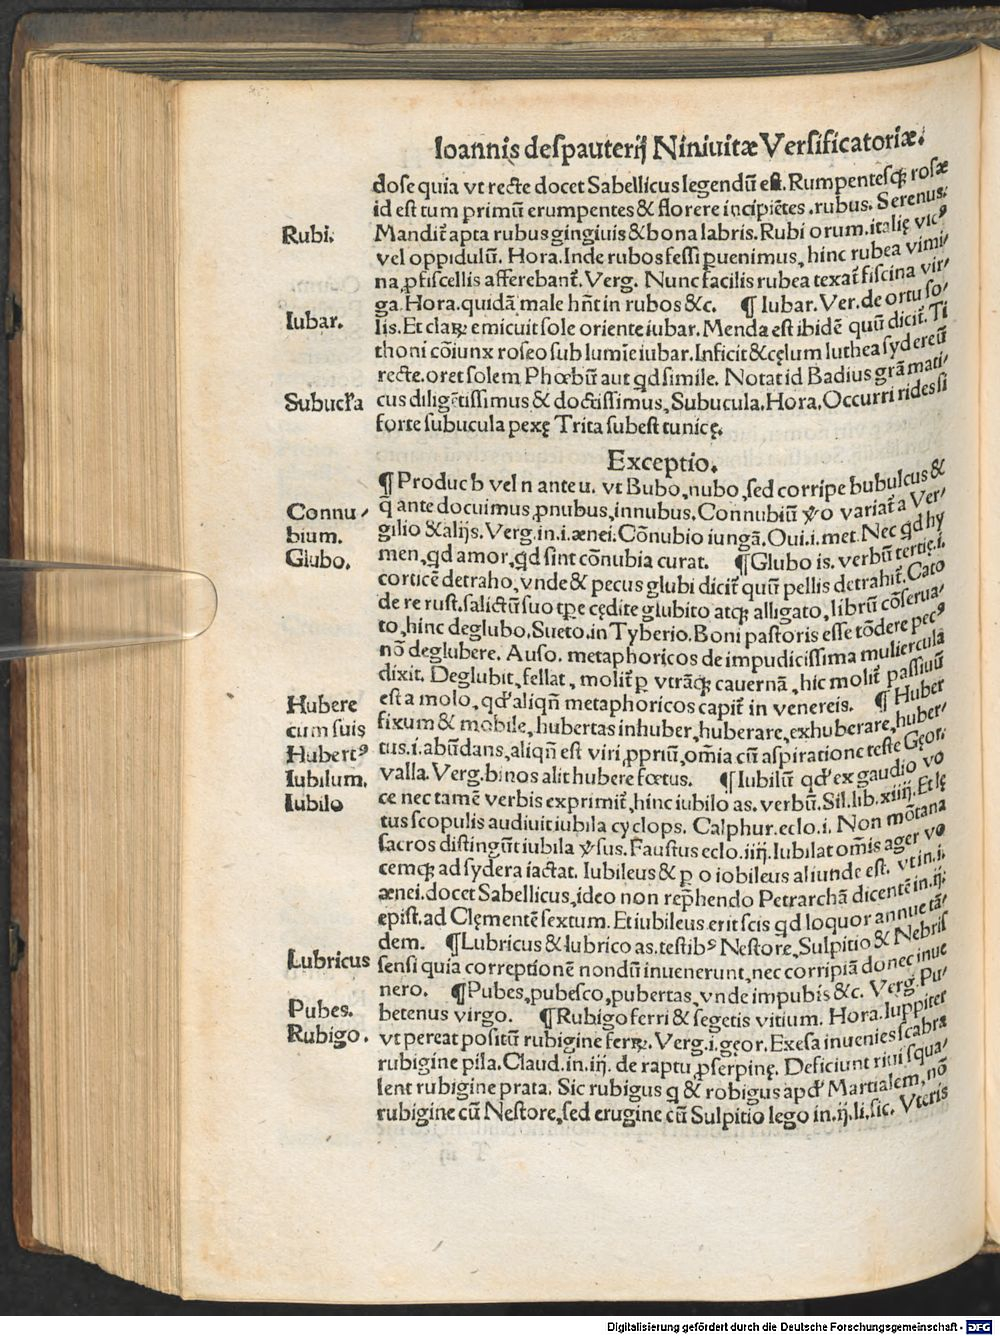 Ioannis despauterij Niniuitæ Versificatoriæ.
dose quia vt recte docet Sabellicus legendū est. Rumpentesq; rosæ
id est tum primū erumpentes & florere incipiētes .rubus. Serenus.
Rubi. Mandit̃ apta rubus gingiuis & bona labris. Rubi orum. italię vicꝰ
vel oppidulū. Hora. Inde rubos fessi ꝑuenimus, hinc rubea vimi/
na, ꝓ fiscellis afferebant̃. Verg. Nunc facilis rubea texat̃ fiscina vir/
ga. Hora. quidā male hn̄t in rubos &c. ¶ Iubar. Ver. de ortu so/
Iubar. lis. Et claꝝ emicuit sole oriente iubar. Menda est ibidē quū dicit̃. Ti
thoni cōiunx roseo sub lumīe iubar. Inficit & cęlum luthea sydereū
recte. oret solem Phœbū aut qd simile. Notat id Badius grāmati/
Subuc̄la cus diligētissimus & doctissimus, Subucula. Hora. Occurri rides si
forte subucula pexę Trita subest tunicę.
Exceptio.
¶ Produc b vel n ante u. vt Bubo, nubo, sed corripe bubulcus &
Connu/ q̄ ante docuimus, pnubus, innubus. Connubiū ꝟo variat̃ a Ver/
bium. gilio & alijs. Verg. in. i. ænei. Cōnubio iungā. Oui. i. met. Nec qd hy
Glubo. men, qd amor, qd sint cōnubia curat. ¶ Glubo is. verbū tertię. i.
corticē detraho, vnde & pecus glubi dicit̃ quū pellis detrahit̃. Cato
de re rust. salictū suo tꝑe cędite glubito atq; alligato, librū cōserua/
to, hinc deglubo. Sueto. in Tyberio. Boni pastoris esse tōdere pecꝰ
nō deglubere. Auso. metaphoricos de impudicissima muliercula
dixit. Deglubit, fellat, molit̃ ꝑ vtrāq; cauernā, hic molit̃ passiuū
Hubere est a molo, qd' aliqn̄ metaphoricos capit̃ in venereis. ¶ Huber
cum suis fixum & mobile, hubertas inhuber, huberare, exhuberare, huber/
Hubertꝰ tus. i. abūdans, aliqn̄ est viri ꝓpriū, om̄ia cū aspiratione teste Geor.
Iubilum. valla. Verg. binos alit hubere fœtus. ¶ Iubilū qd' ex gaudio vo
Iubilo ce nec tamē verbis exprimit̃, hinc iubilo as. verbū. Sil. lib. xiiij. Et lę
tus scopulis audiuit iubila cyclops. Calphur. eclo. i. Non mōtana
sacros distingūt iubila ꝟsus. Faustus eclo. iiij. Iubilat om̄is ager vo
cemq; ad sydera iactat. Iubileus & ꝑ o iobileus aliunde est. vt in. i.
ænei. docet Sabellicus, ideo non rep̄hendo Petrarchā dicentē in. ij.
epist. ad Clęmentē sextum. Et iubileus erit scis qd loquor annue tā/
dem. ¶ Lubricus & lubrico as. testibꝰ Nestore, Sulpitio & Nebris
Lubricus sensi quia correptionē nondū inuenerunt, nec corripiā donec inue
nero. ¶ Pubes, pubesco, pubertas, vnde impubis &c. Verg. Pu/
Pubes. betenus virgo. ¶ Rubigo ferri & segetis vitium. Hora. Iuppiter
Rubigo. vt pereat positū rubigine ferꝝ. Verg. i. geor. Exesa inuenies scabra
rubigine pila. Claud. in. iij. de raptu ꝓserpinę. Deficiunt riui squa/
lent rubigine prata. Sic rubigus q & robigus apd' Martialem, nō
rubigine cū Nestore, sed erugine cū Sulpitio lego in. ij. li. sic. Vteris
Digitalisierung gefördert durch die Deutsche Forschungsgemeinschaft - DFG